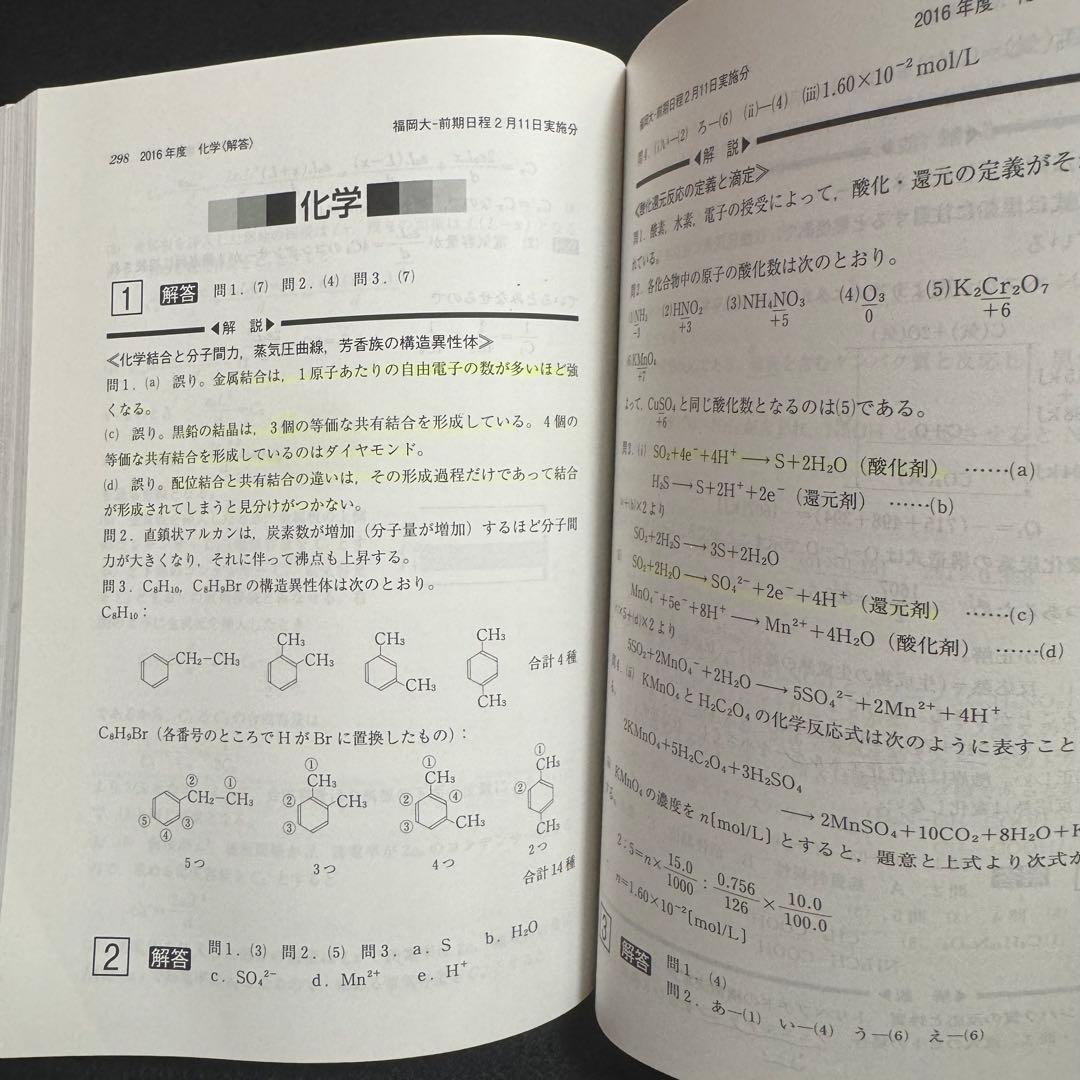 298 2016年度 化学〈解答〉
福岡大-前期日程2月11日実施分
化学
1 解答 問1.(7) 問2.(4) 問3.(7)
◀解 説▶
≪化学結合と分子間力,蒸気圧曲線,芳香族の構造異性体≫
問1.(a) 誤り。金属結合は,1原子あたりの自由電子の数が多いほど強
くなる。
(c) 誤り。黒鉛の結晶は,3個の等価な共有結合を形成している。4個の
等価な共有結合を形成しているのはダイヤモンド。
(d) 誤り。配位結合と共有結合の違いは,その形成過程だけであって結合
が形成されてしまうと見分けがつかない。
問2.直鎖状アルカンは,炭素数が増加(分子量が増加)するほど分子間
力が大きくなり,それに伴って沸点も上昇する。
問3.C₈H₁₀,C₈H₉Brの構造異性体は次のとおり。
C₈H₁₀:
CH₂-CH₃
CH₃
CH₃
CH₃
CH₃
CH₃
CH₃
合計4種
C₈H₉Br(各番号のところでHがBrに置換したもの):
② ①
CH₂-CH₃
⑤ ④ ③
5つ
①
CH₃
② CH₃
③
3つ
①
CH₃
② ④
③ CH₃
4つ
①
CH₃
②
CH₃
①
2つ
合計14種
2 解答 問1.(3) 問2.(5) 問3.a.S b.H₂O
c.SO₄²⁻ d.Mn²⁺ e.H⁺
2016年度
福岡大-前期日程2月11日実施分
問4. (2) ろ―(6) (ii)―(4) (iii)1.60×10⁻²mol/L
◀解 説▶
≪酸化還元反応の定義と滴定≫
問1.酸素,水素,電子の授受によって,酸化・還元の定義がそ
れている。
問2.各化合物中の原子の酸化数は次のとおり。
(1)NH₃ (2)HNO₂ (3)NH₄NO₃ (4)O₃ (5)K₂Cr₂O₇
−3 +3 +5 0 +6
(6)KMnO₄
+7
よって,CuSO₄と同じ酸化数となるのは(5)である。
+6
問3.(i) SO₂+4e⁻+4H⁺⟶S+2H₂O(酸化剤) ……(a)
H₂S⟶S+2H⁺+2e⁻(還元剤) ……(b)
+(b)×2より
SO₂+2H₂S⟶3S+2H₂O
SO₂+2H₂O⟶SO₄²⁻+2e⁻+4H⁺(還元剤) ……(c)
MnO₄⁻+5e⁻+8H⁺⟶Mn²⁺+4H₂O(酸化剤) ……(d)
×5+(d)×2より
5SO₂+2MnO₄⁻+2H₂O⟶5SO₄²⁻+2Mn²⁺+4H⁺
問4.(ii) KMnO₄とH₂C₂O₄の化学反応式は次のように表すこと
る。
2KMnO₄+5H₂C₂O₄+3H₂SO₄
⟶2MnSO₄+10CO₂+8H₂O+K
KMnO₄の濃度をn[mol/L]とすると,題意と上式より次式が
する。
2:5=n×15.0/1000:0.756/126×10.0/100.0
n=1.60×10⁻²[mol/L]
3 解答 問1.(4)
問2.あ―(1) い―(4) う―(6) え―(6)